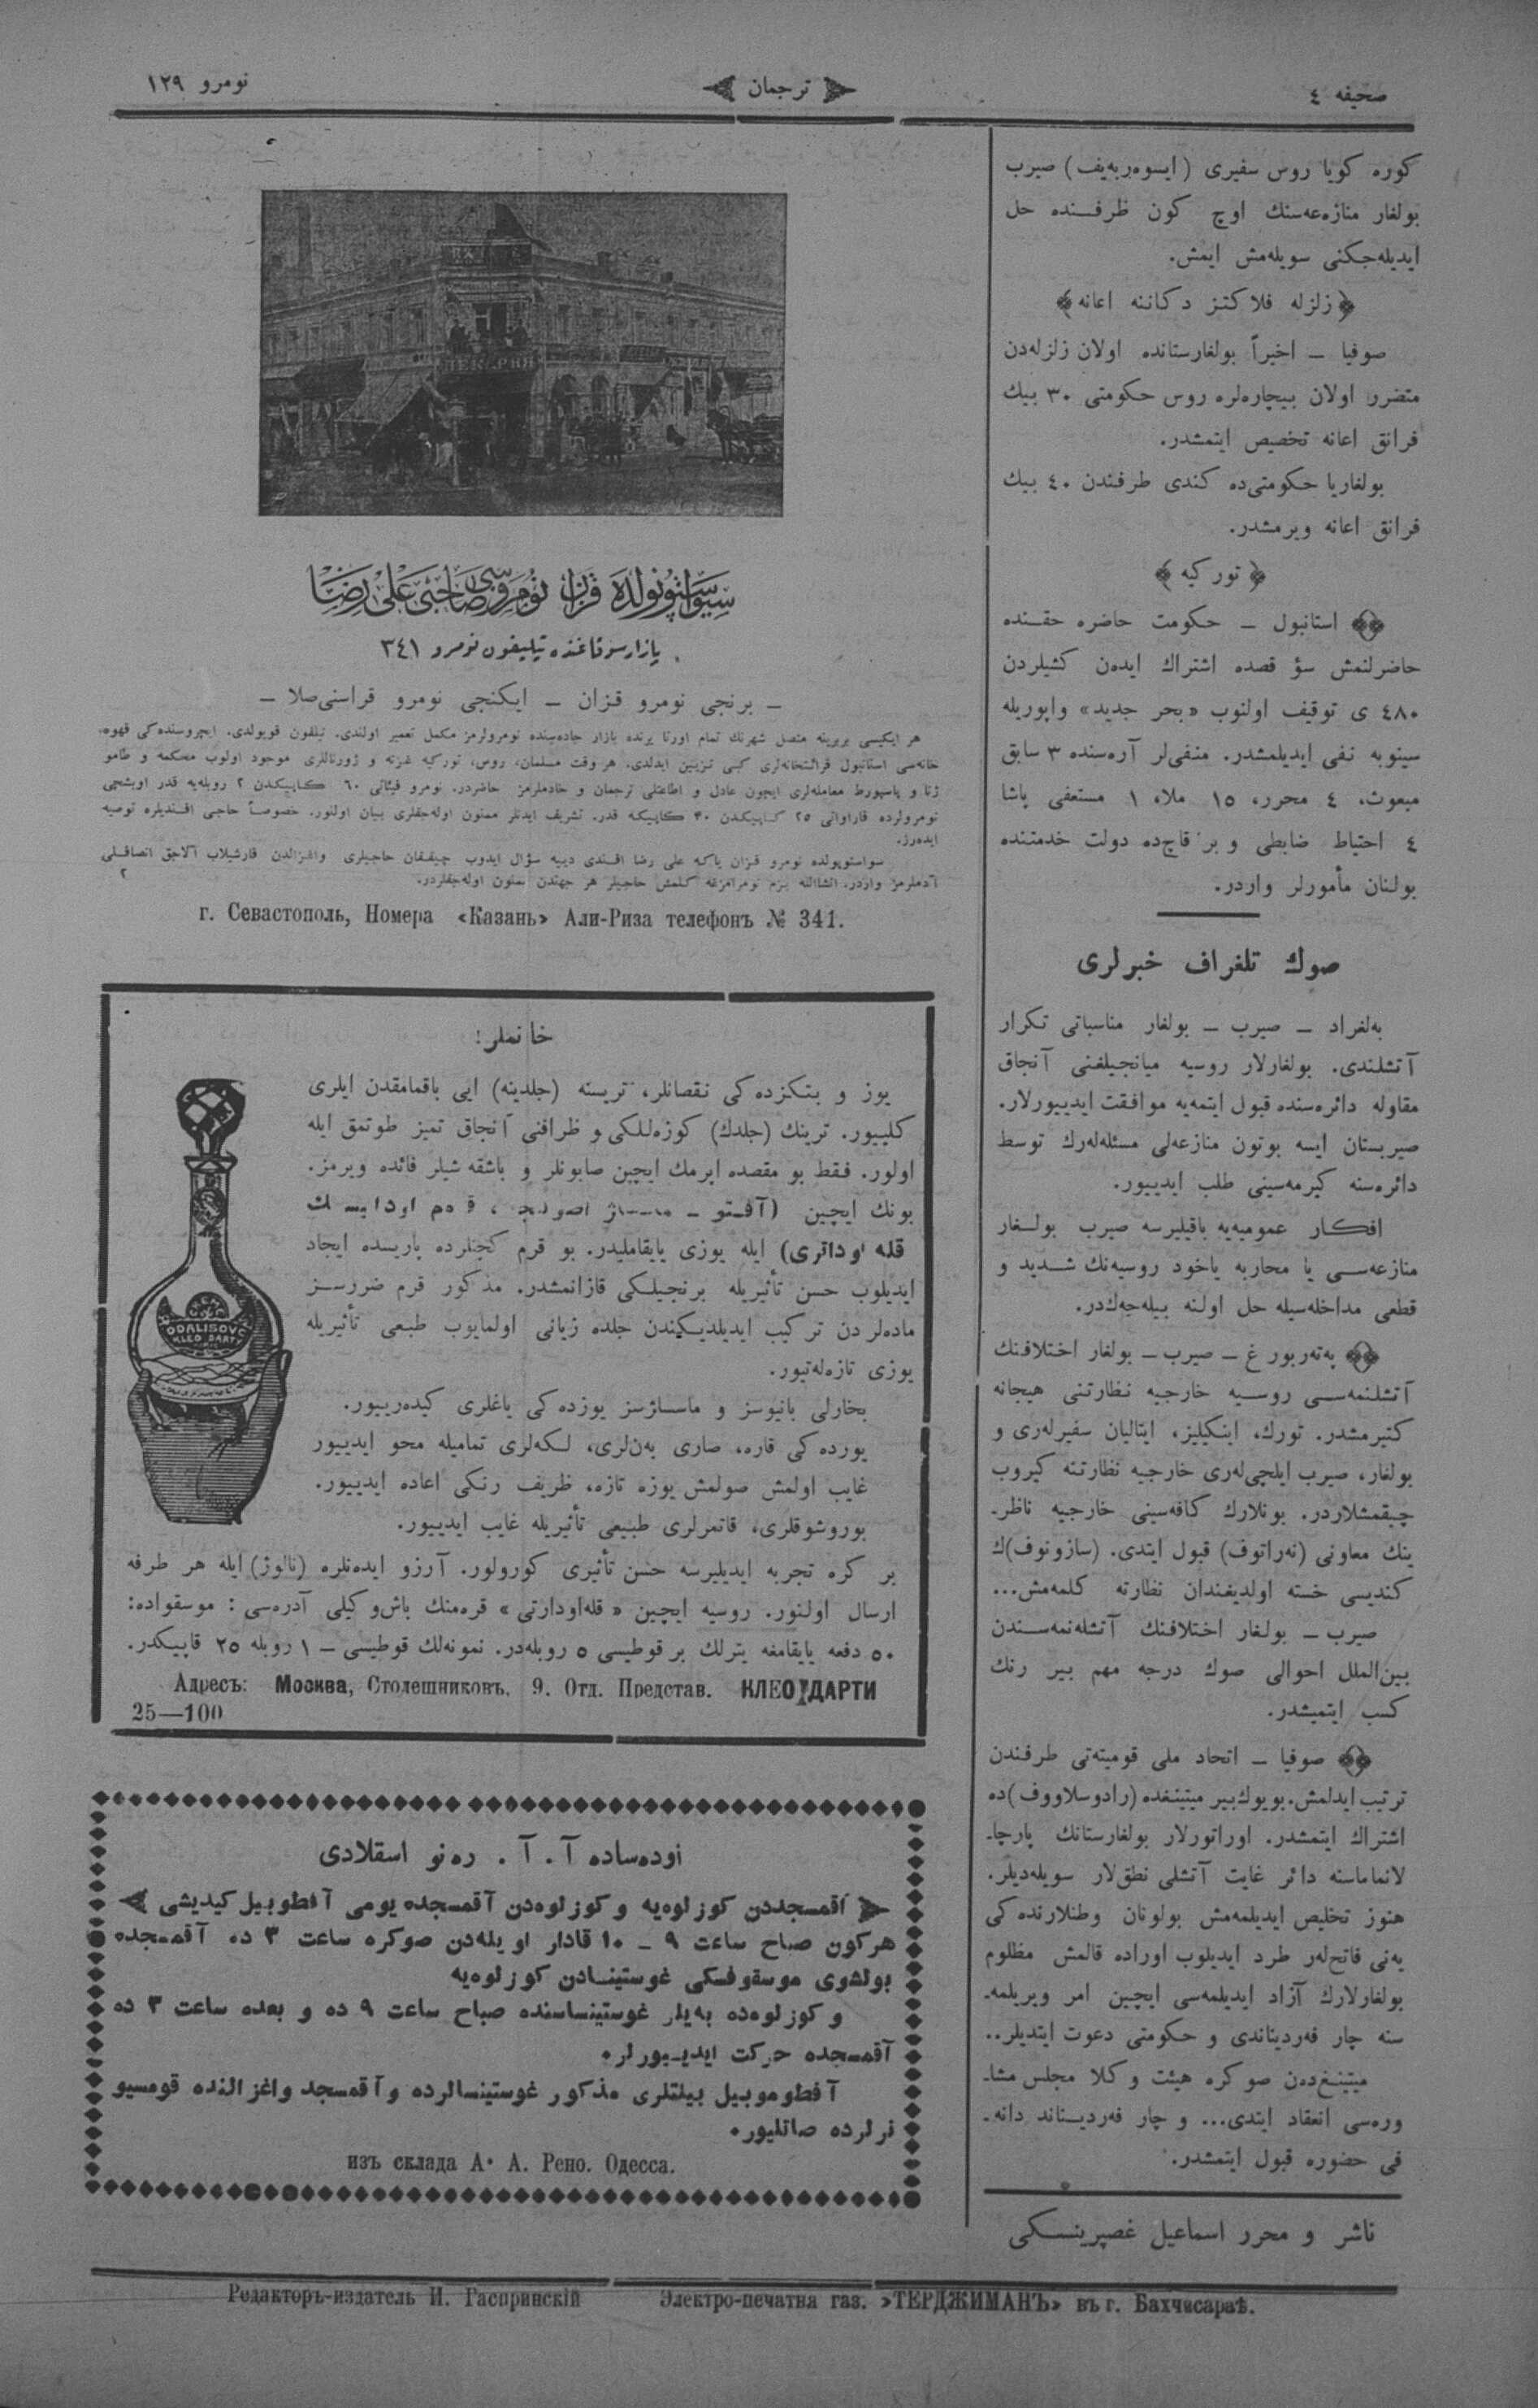 صحیفه ٤
ترجمان
نومرو ١٢٩
كوره كویا روس سفیری (ایسوه‌ربه‌یف) صیرب
بولغار منازعه‌سنك اوچ كون ظرفنده حل
ایدیله‌جكنی سویله‌مش ایمش.
زلزله فلاكتز دكاننه اعانه
صوفیا ـ اخیراً بولغارستانده اولان زلزله‌دن
متضرر اولان بیچاره‌لره روس حكومتی ٣٠ بیك
فرانق اعانه تخصیص ایتمشدر.
بولغاریا حكومتی‌ده كندی طرفندن ٤٠ بیك
فرانق اعانه ویرمشدر.
توركیه
استانبول ـ حكومت حاضره حقنده
حاضرلنمش سؤ قصده اشتراك ایدن كشیلردن
٤٨٠ ی توقیف اولنوب «بحر جدید» واپوریله
سینوبه نفی ایدیلمشدر. منفی‌لر آره‌سنده ٣ سابق
مبعوث، ٤ محرر، ١٥ ملا، ١ مستعفی پاشا
٤ احتیاط ضابطی و بر قاچ‌ده دولت خدمتنده
بولنان مأمورلر واردر.
صوك تلغراف خبرلری
به‌لغراد ـ صیرب ـ بولغار مناسباتی تكرار
آتشلندی. بولغارلار روسیه میانجیلغنی آنجاق
مقاوله دائره‌سنده قبول ایتمه‌یه موافقت ایدییورلار.
صیربستان ایسه بوتون منازعه‌لی مسئله‌له‌رك توسط
دائره‌سنه كیرمه‌سینی طلب ایدییور.
افكار عمومیه‌یه باقیلیرسه صیرب بولغار
منازعه‌سی یا محاربه یاخود روسیه‌نك شدید و
قطعی مداخله‌سیله حل اولنه بیله‌جه‌كدر.
په‌ته‌ربورغ ـ صیرب ـ بولغار اختلافنك
آتشلنمه‌سی روسیه خارجیه نظارتنی هیجانه
كتیرمشدر. تورك، اینكیلیز، ایتالیان سفیرله‌ری و
بولغار، صیرب ایلچی‌له‌ری خارجیه نظارتنه كیروب
چیقمشلاردر. بونلارك كافه‌سینی خارجیه ناظر-
ینك معاونی (نه‌راتوف) قبول ایتدی. (سازونوف)ك
كندیسی خسته اولدیغندان نظارته كلمه‌مش...
صیرب ـ بولغار اختلافنك آتشله‌نمه‌سندن
بین‌الملل احوالی صوك درجه مهم بیر رنك
كسب ایتمیشدر.
صوفیا ـ اتحاد ملی قومیته‌تی طرفندن
ترتیب ایدلمش. بویوك بیر میتینغده (رادوسلاووف)ده
اشتراك ایتمشدر. اوراتورلار بولغارستانك پارچا-
لانماماسنه دائر غایت آتشلی نطق‌لار سویله‌دیلر.
هنوز تخلیص ایدیلمه‌مش بولونان وطنلارنده‌كی
یه‌نی فاتح‌له‌ر طرد ایدیلوب اوراده قالمش مظلوم
بولغارلارك آزاد ایدیلمه‌سی ایچین امر ویریلمه-
سنه چار فه‌ردیناندی و حكومتی دعوت ایتدیلر..
میتینغ‌ده‌ن صوكره هیئت وكلا مجلس مشا-
وره‌سی انعقاد ایتدی... و چار فه‌ردیناند دانه-
فی حضوره قبول ایتمشدر.
ناشر و محرر اسماعیل غصپرینسكی
ПЕКАРНЯ
سیواستوپولده قزان نومروسی صاحبی علی رضا
بازار سوقاغنده تیلیفون نومرو ٣٤١
ـ برنجی نومرو قزان ـ ایكنجی نومرو قراسنی‌صلا ـ
هر ایكیسی بربرینه متصل شهرنك تمام اورتا یرنده بازار جاده‌سنده نومرولرمز مكمل تعمیر اولندی. تیلفون قویولدی. ایچروسنده‌كی قهوه-
خانه‌سی استانبول قرائتخانه‌لری كبی تزیین ایدلدی. هر وقت مسلمان، روس، توركیه غزته و ژورناللری موجود اولوب محكمه و طامو
ژنا و پاسپورط معامله‌لری ایچون عادل و اطاعتلی ترجمان و خادملرمز حاضردر. نومرو فیئاتی ٦٠ كاپیكدن ٢ روبله‌یه قدر اوبشچی
نومرولرده قاراواتی ٢٥ كاپیكدن ٣٠ كاپیكه قدر. تشریف ایدنلر ممنون اوله‌جقلری بیان اولنور. خصوصاً حاجی افندیلره توصیه
ایده‌رز.
سواستوپولده نومرو قزان یاكه علی رضا افندی دییه سؤال ایدوب چیققان حاجیلری واغزالدن قارشیلاب آلاجق انصافلی
آدملرمز واردر. انشاالله بزم نومرامزغه كلمش حاجیلر هر جهتدن ممنون اوله‌جقلردر. ٢
г. Севастополь, Номера «Казань» Али-Риза телефонъ № 341.
خانملر!
یوز و بتكزده‌كی نقصانلر، تریسنه (جلدینه) ایی باقمامقدن ایلری
كلییور. ترینك (جلدك) كوزه‌للكی و ظرافنی آنجاق تمیز طوتمق ایله
اولور. فقط بو مقصده ایرمك ایچین صابونلر و باشقه شیلر فائده ویرمز.
بونك ایچین (آفتو ـ قرم اودالیسك
قله اوداتری) ایله یوزی یایقاملیدر. بو قرم كچنلرده پاریسده ایجاد
ایدیلوب حسن تأثیریله برنجیلكی قازانمشدر. مذكور قرم ضررسز
ماده‌لردن تركیب ایدیلدیكیندن جلده زیانی اولمایوب طبعی تأثیریله
یوزی تازه‌له‌تیور.
بخارلی بانیوسز و ماساژسز یوزده‌كی یاغلری كیده‌رییور.
یورده‌كی قاره، صاری به‌ن‌لری، لكه‌لری تمامیله محو ایدییور
غایب اولمش صولمش یوزه تازه، ظریف رنكی اعاده ایدییور.
بوروشوقلری، قاتمرلری طبیعی تأثیریله غایب ایدییور.
ODALISOVE
CLEO DARTY
بر كره تجربه ایدیلیرسه حسن تأثیری كورولور. آرزو ایده‌نلره (نالوژ) ایله هر طرفه
ارسال اولنور. روسیه ایچین «قله‌اودارتی» قره‌منك باش‌وكیلی آدره‌سی: موسقواده:
٥٠ دفعه یایقامغه یترلك بر قوطیسی ٥ روبله‌در. نمونه‌لك قوطیسی ـ ١ روبله ٢٥ قاپیكدر.
Адресъ: Москва, Столешниковъ, 9. Отд. Представ. КЛЕО ДАРТИ
25—100
اوده‌ساده آ. آ. ره‌نو اسقلادی
آقمسجددن كوزلوه‌یه و كوزلوه‌دن آقمسجده یومی آفطوبیل كیدیشی
هركون صباح ساعت ٩ ـ ١٠ قادار اویله‌دن صوكره ساعت ٣ ده آقمسجده
بولشوی موسقوفسكی غوستینسادن كوزلوه‌یه
و كوزلوه‌ده به‌یلر غوستینساسنده صباح ساعت ٩ ده و بعده ساعت ٣ ده
آقمسجده حركت ایدییورلر.
آفطوموبیل بیلتلری مذكور غوستینسالرده و آقمسجد واغزالنده قومسیو
نرلرده صاتلیور.
изъ склада А. А. Рено. Одесса.
Редакторъ-издатель И. Гаспринскій
Электро-печатня газ. »ТЕРДЖИМАНЪ» въ г. Бахчисараѣ.